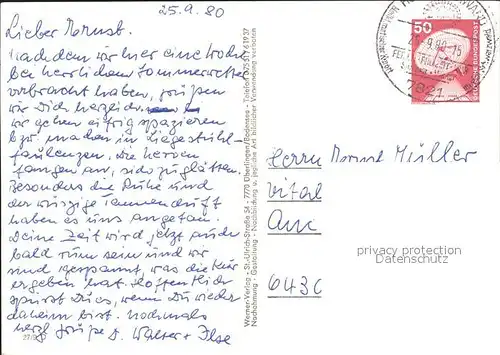 25.9.80
Lieber Ernst.
Nachdem wir hier eine Woche
bei herrlichem Sommerwetter
verbracht haben, grüßen
wir Dich herzlich.
wir gehen eifrig spazieren
bzw. machen in Liegestühl-
faulenzen. die Herren
fangen an, sich zu glätten.
Besonders die Ruhe und
der würzige Tannenduft
haben es uns angetan.
Deine Zeit wird jetzt auch
bald rum sein und wir
sind gespannt, was die Kur
ergeben hat. Hoffentlich
spürst Du es, wenn Du wieder
daheim bist. Nochmals
herzl. Grüße D. Walter + Ilse
Werner-Verlag - St.-Ulrich-Straße 54 - 7770 Überlingen/Bodensee - Telefon 07551/61937
Nachahmung - Gestaltung - Nachbildung u. jegliche Art bildlicher Verwendung verboten
50
DEUTSCHE BUNDESPOST
Herrn Ernst Müller
Vital
Am
6430
privacy protection
Datenschutz